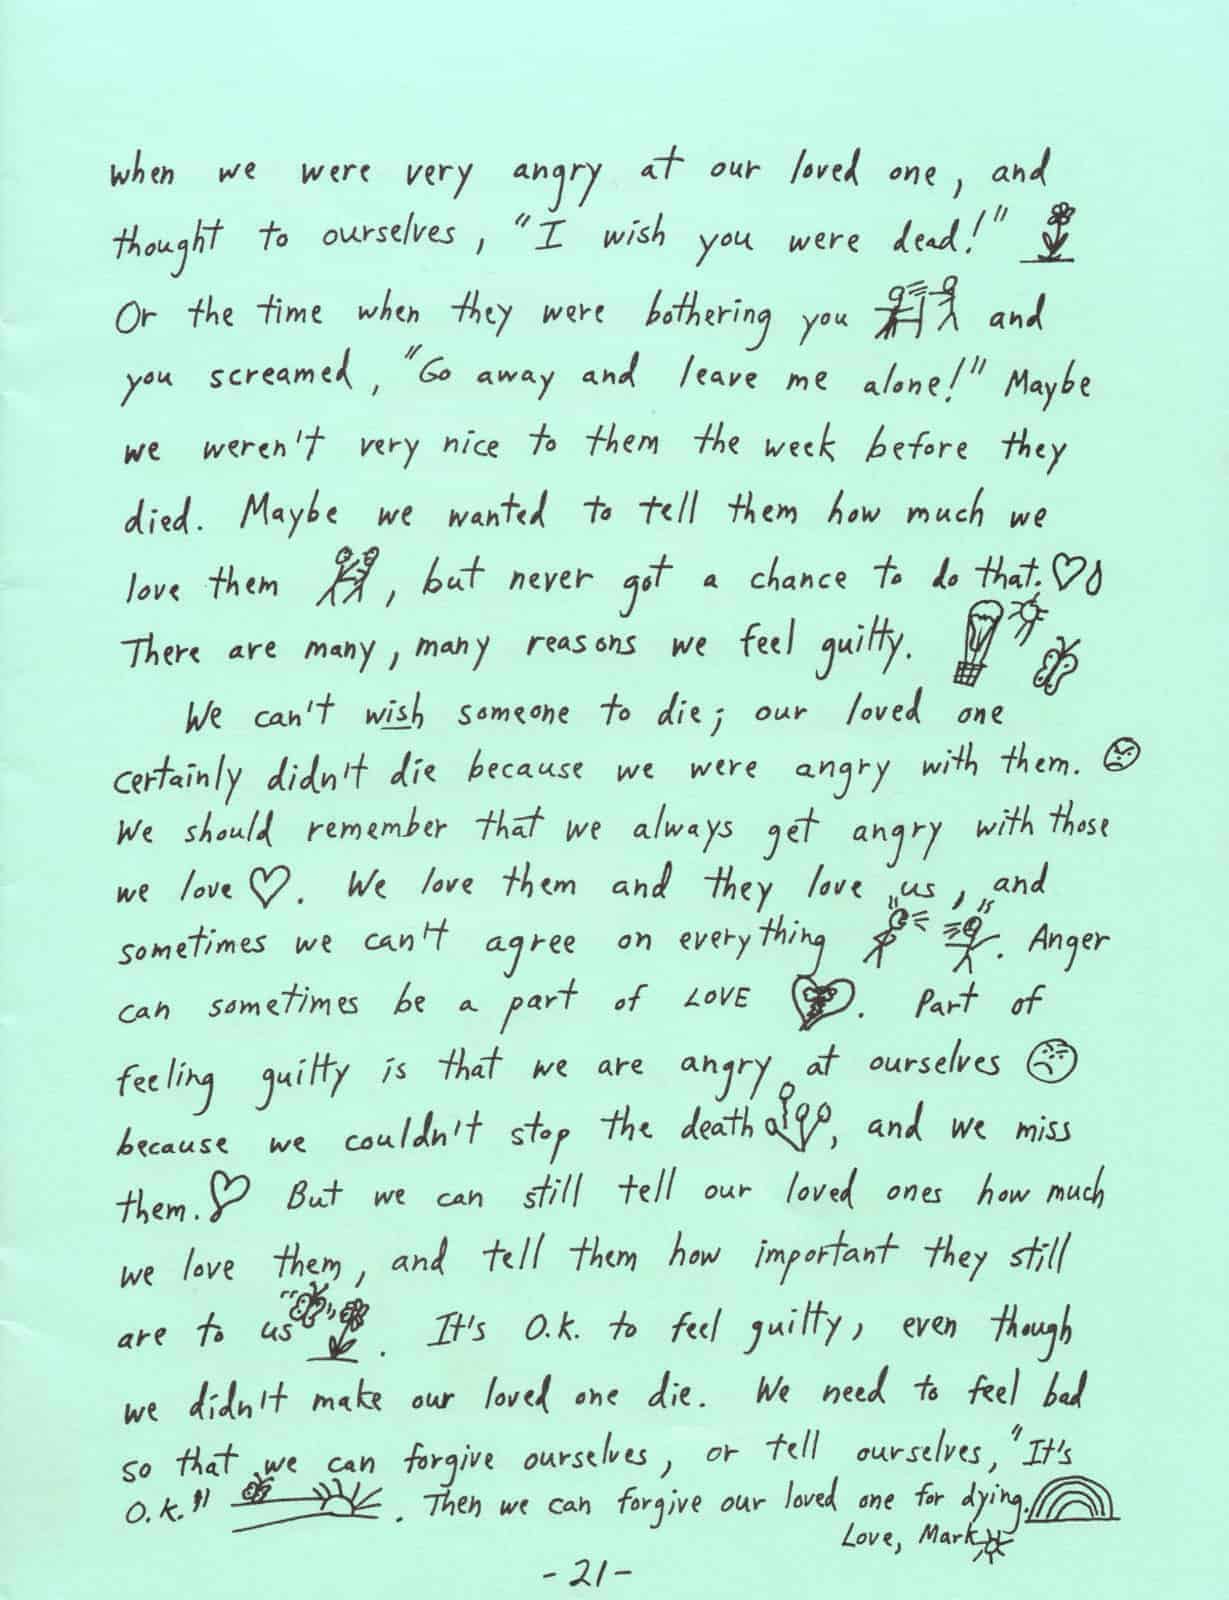 when we were very angry at our loved one, and
thought to ourselves, "I wish you were dead!"
Or the time when they were bothering you and
you screamed, "Go away and leave me alone!" Maybe
we weren't very nice to them the week before they
died. Maybe we wanted to tell them how much we
love them, but never got a chance to do that.
There are many, many reasons we feel guilty.
We can't wish someone to die; our loved one
certainly didn't die because we were angry with them.
We should remember that we always get angry with those
we love. We love them and they love us, and
sometimes we can't agree on everything. Anger
can sometimes be a part of LOVE. Part of
feeling guilty is that we are angry at ourselves
because we couldn't stop the death, and we miss
them. But we can still tell our loved ones how much
we love them, and tell them how important they still
are to us. It's O.K. to feel guilty, even though
we didn't make our loved one die. We need to feel bad
so that we can forgive ourselves, or tell ourselves, "It's
O.K." . Then we can forgive our loved one for dying.
Love, Mark
-21-